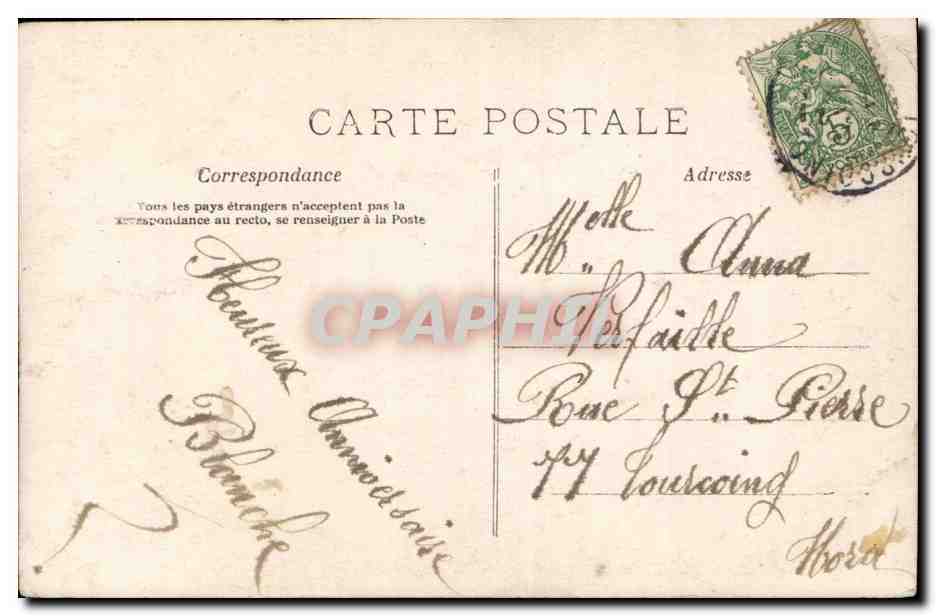 CARTE POSTALE
Correspondance
Tous les pays étrangers n'acceptent pas la
correspondance au recto, se renseigner à la Poste
Heureux Anniversaire
Blanche
?
Adresse
Melle Anna
Verfaille
Rue St Pierre
77 Tourcoing
Nord
CPAPHIL
5